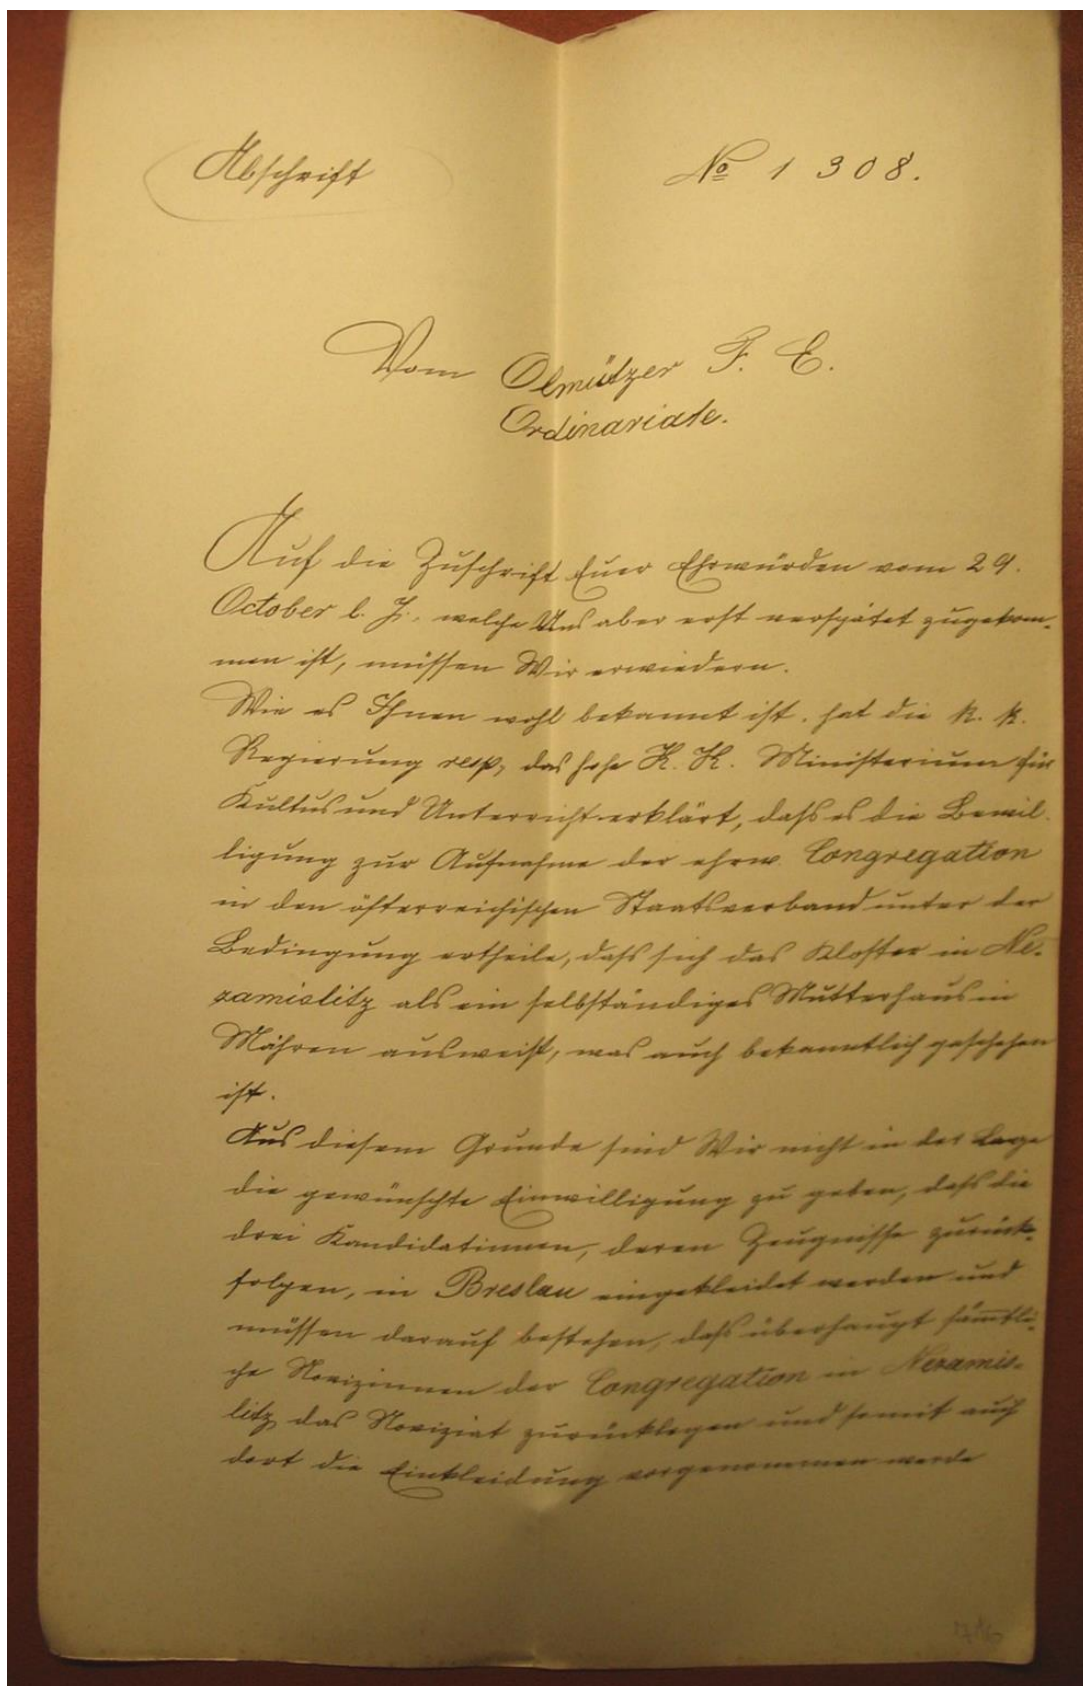 Abschrift
№ 1308.
Vom Olmützer F. E.
Ordinariate.
Auf die Zuschrift Euer Ehrwürden vom 29.
October l. J., welche Uns aber erst verspätet zugekom-
men ist, müssen Wir erwiedern.
Wie es Ihnen wohl bekannt ist, hat die k. k.
Regierung resp, das hohe K. K. Ministerium für
Kultus und Unterricht erklärt, dass es die Bewil-
ligung zur Aufnahme der ehrw. Congregation
in den österreichischen Staatsverband unter der
Bedingung ertheile, dass sich das Kloster in Ne-
zamislitz als ein selbständiges Mutterhaus in
Mähren ausweist, was auch bekanntlich geschehen
ist.
Aus diesem Grunde sind Wir nicht in der Lage
die gewünschte Einwilligung zu geben, dass die
drei Kandidatinnen, deren Zeugnisse zurück-
folgen, in Breslau eingekleidet werden und
müssen darauf bestehen, dass überhaupt sämtli-
che Novizinnen der Congregation in Nezamis-
litz das Noviziat zurücklegen und somit auch
dort die Einkleidung vorgenommen werde